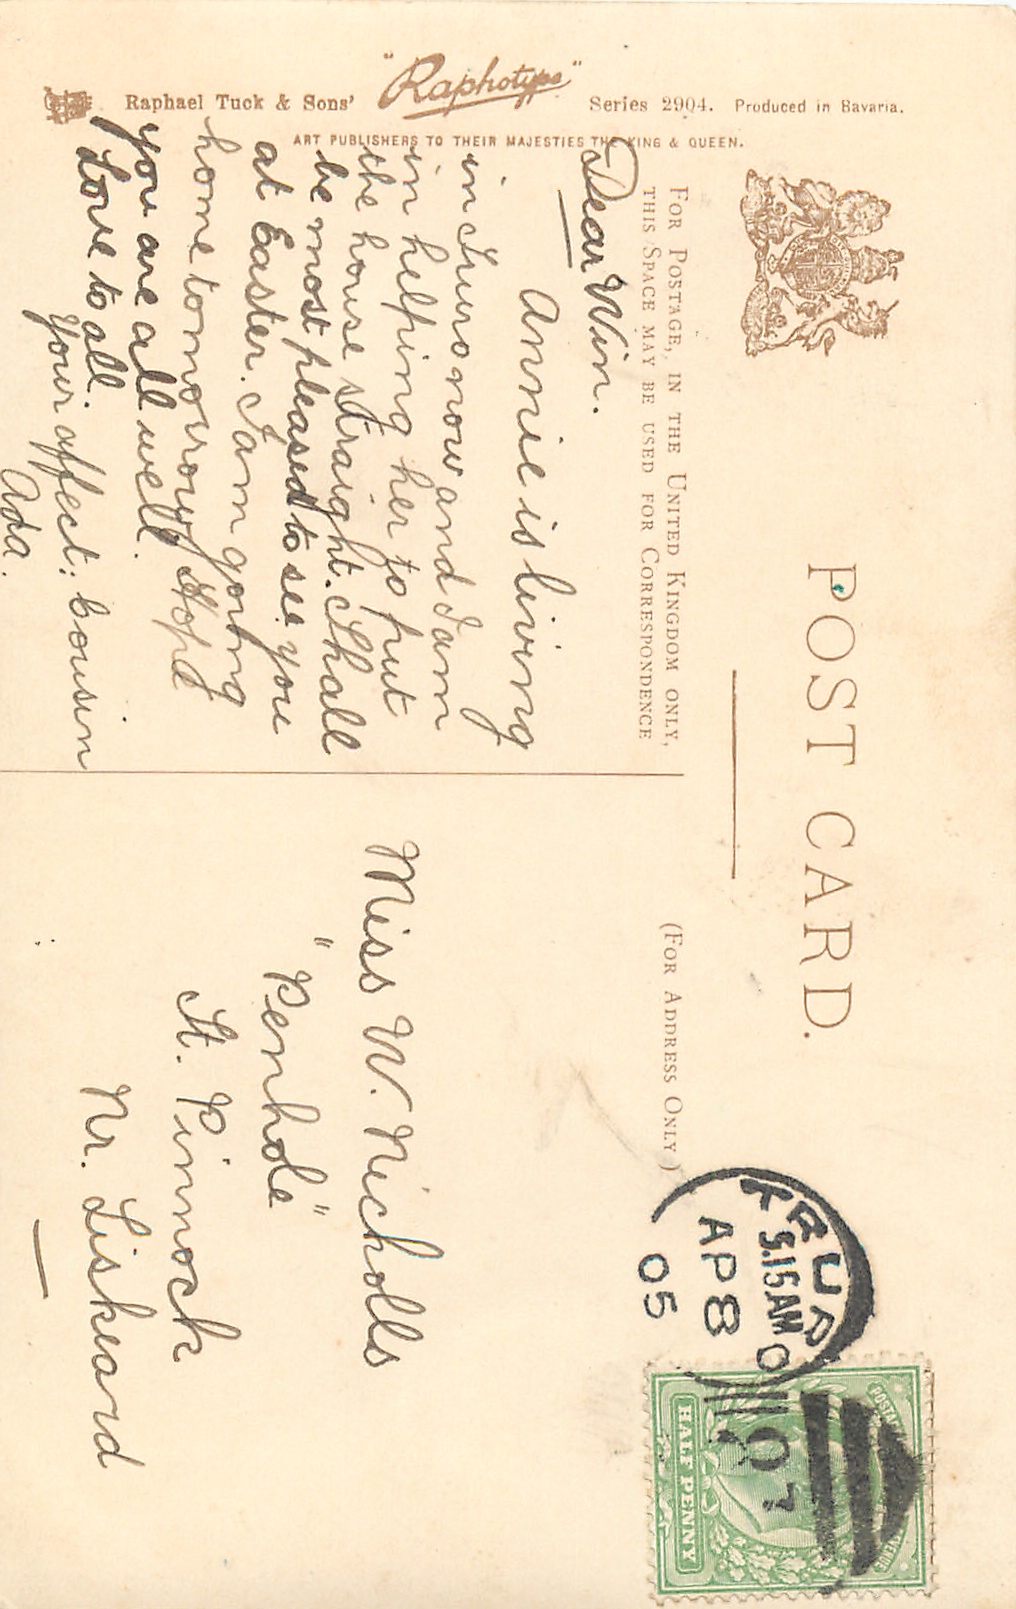 "Raphotype"
Raphael Tuck & Sons' Series 2904. Produced in Bavaria.
ART PUBLISHERS TO THEIR MAJESTIES THE KING & QUEEN.
POST CARD.
FOR POSTAGE, IN THE UNITED KINGDOM ONLY,
THIS SPACE MAY BE USED FOR CORRESPONDENCE
(FOR ADDRESS ONLY)
Dear Win.
Annie is living
in Truro now and I am
in helping her to put
the house straight. Shall
be most pleased to see you
at Easter. I am going
home tomorrow Hope
you are all well.
Love to all.
Your affect: cousin
Ada.
Miss W. Nicholls
"Penhole"
St. Pinnock
Nr. Liskeard
TRURO
5.15AM
AP 8
05
HALF PENNY